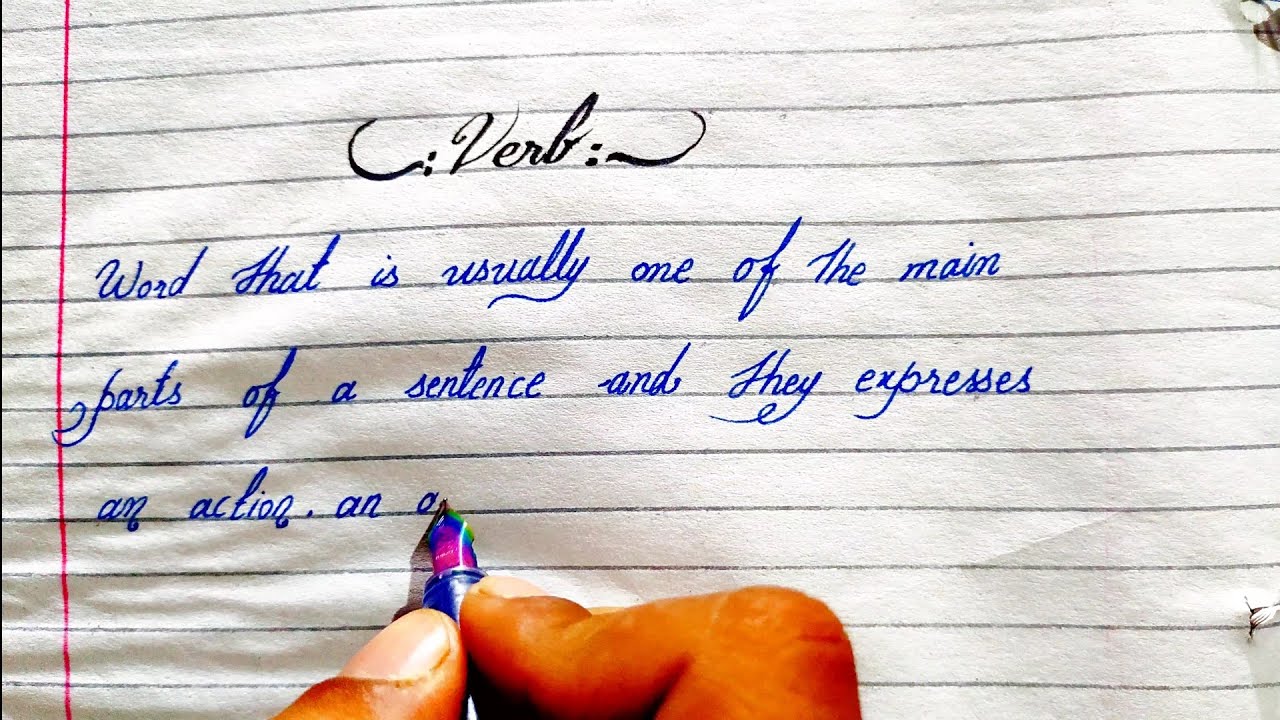 :Verb:
Word that is usually one of the main
parts of a sentence and they expresses
an action. an a